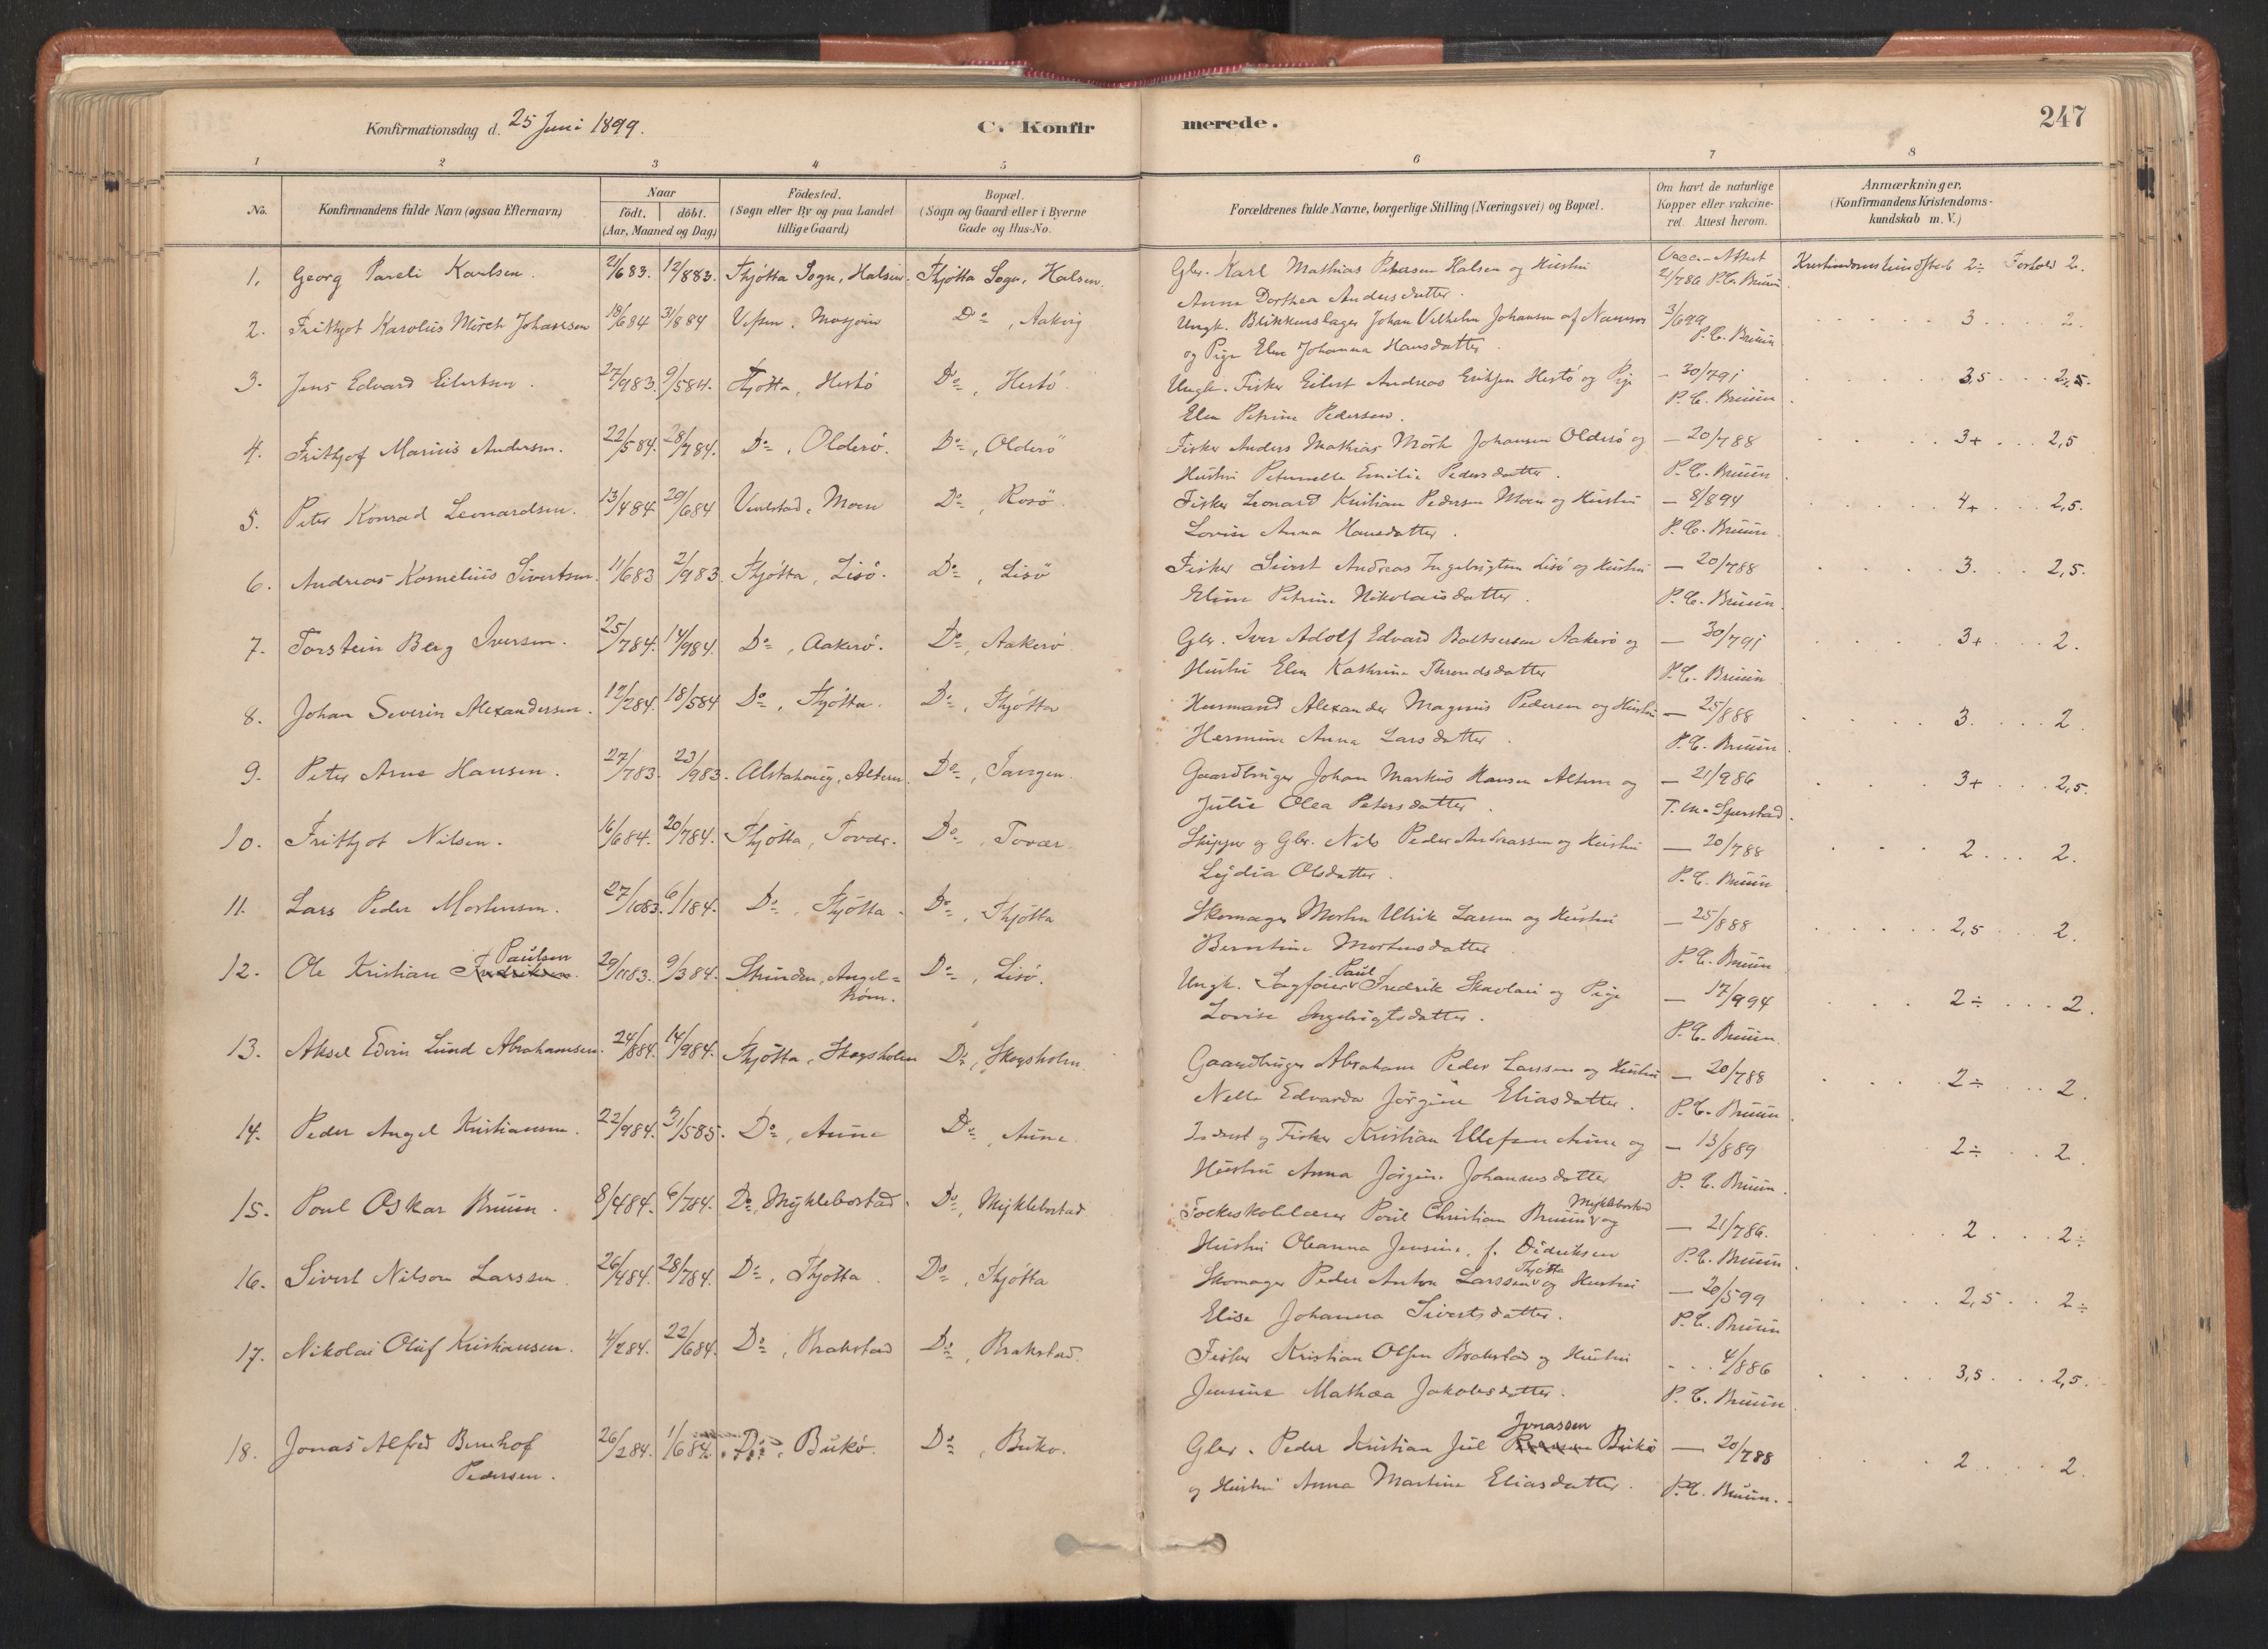 Konfirmationsdag d. 25 Juni 1899.
C. Konfirmerede.
247
1 2 3 4 5 6 7 8
No.
Konfirmandens fulde Navn (ogsaa Efternavn)
Naar
födt. döbt.
(Aar, Maaned og Dag)
Födested.
(Sogn eller By og paa Landet
tillige Gaard)
Bopæl.
(Sogn og Gaard eller i Byerne
Gade og Hus-No.
Forældrenes fulde Navne, borgerlige Stilling (Næringsvei) og Bopæl.
Om havt de naturlige
Kopper eller vakcine-
ret. Attest herom.
Anmærkninger.
(Konfirmandens Kristendoms-
kundskab m. V.)
1. Georg Pareli Karlsen. 21/683. 12/883. Thjøtta Sogn, Halsen. Thjøtta Sogn, Halsen.
Gbr. Karl Mathias Petersen Halsen og Hustru
Anna Dorthea Andersdatter.
Vacc.-Attest
21/786 P. C. Bruun
Kristendomskundskab 2÷ Forhold 2.
2. Frithjof Karolius Mörch Johansen 18/684 31/884 Vefsen, Mosjøen Do, Aakvig
Ungk. Blikkenslager Johan Vilhelm Johansen af Namsos
og Pige Elen Johanna Hansdatter.
3/699
P. C. Bruun
3 2.
3. Jens Edvard Eilertsen. 27/983. 9/584. Thjøtta, Hestö Do, Hestö.
Ungk. Fisker Eilert Andreas Eriksen Hestö og Pige
Elen Petrine Pedersen.
— 30/791
P. C. Bruun
3,5 2,5.
4. Frithjof Marius Andersen. 22/584. 28/784. Do, Olderö. Do, Olderö
Fisker Anders Mathias Mörk Johansen Olderö og
Hustru Peternelle Emilie Pedersdatter.
— 20/788
P. C. Bruun
3+ 2,5
5. Peter Konrad Leonardsen. 13/484 29/684 Velfstad, Moen Do, Rosö.
Fisker Leonard Kristian Pedersen Moen og Hustru
Lovise Anna Hansdatter.
— 8/894
P. C. Bruun
4+ 2,5.
6. Andreas Kornelius Sivertsen. 11/683 2/983. Thjøtta, Lisö. Do, Lisö
Fisker Sivert Andreas Ingebrigtsen Lisö og Hustru
Eline Petrine Nikolaisdatter.
— 20/788
P. C. Bruun.
3. 2,5.
7. Torstein Berg Iversen. 25/784. 14/984. Do, Aakerö. Do, Aakerö.
Gbr. Iver Adolf Edvard Baltsersen Aakerö og
Hustru Elen Kathrine Throndsdatter
— 30/791
P. C. Bruun
3+ 2.
8. Johan Severin Alexandersen. 12/284. 18/584 Do, Thjøtta. Do, Thjøtta
Husmand Alexander Magnus Pedersen og Hustru
Hermine Anna Larsdatter.
— 25/888
P. C. Bruun.
3. 2
9. Peter Arne Hansen. 27/783. 23/983. Alstahaug, Altern. Do, Tangen.
Gaardbruger Johan Markus Hansen Altern og
Julie Olea Petersdatter.
— 21/986
3+ 2,5.
10. Frithjof Nilsen. 16/684. 20/784. Thjøtta, Tovær. Do, Tovær.
Skipper og Gbr. Nils Peder Andreassen og Hustru
Lydia Olsdatter.
— 20/788
P. C. Bruun
2 2.
11. Lars Peder Mortensen. 27/1083. 6/184. Do, Thjøtta. Do, Thjøtta
Skomager Morten Ulrik Larsen og Hustru
Berntine Mortensdatter
— 25/888
P. C. Bruun
2,5 2.
12. Ole Kristian Fredriksen. Paulsen 29/1183. 9/384. Strinden, Angel=
tröm. Do, Lisö.
Ungk. Sagfører Paul Fredrik Skavlan og Pige
Lovise Ingebrigtsdatter.
— 17/994
P. C. Bruun.
2÷ 2.
13. Aksel Edvin Lund Abrahamsen. 24/884. 14/984. Thjøtta, Skogsholm Do, Skogsholm.
Gaardbruger Abraham Peder Larssen og Hustru
Nelle Edvarda Jørgine Eliasdatter.
— 20/788
P. C. Bruun.
2÷ 2.
14. Peder Angel Kristiansen. 22/984. 31/585. Do, Aune Do, Aune.
Inderst og Fisker Kristian Ellefsen Aune og
Hustru Anna Jørgine Johannesdatter
— 13/889
P. C. Bruun.
2÷ 2.
15. Poul Oskar Bruun. 8/484. 6/784. Do, Myklebostad. Do, Myklebostad
Folkeskolelærer Poul Christian Bruun Myklebostad og
Hustru Oleanna Jensine, f. Didriksen
— 21/786.
P. C. Bruun.
2 2÷
16. Sivert Nilson Larssen. 26/484. 28/784. Do, Thjøtta. Do, Thjøtta
Skomager Peder Anton Larssen Thjøtta og Hustru
Elise Johanna Sivertsdatter.
— 20/599
P. C. Bruun
2,5 2÷
17. Nikolai Oluf Kristiansen. 4/284. 22/684. Do, Brakstad Do, Brakstad.
Fisker Kristian Olsen Brakstad og Hustru
Jensine Mathea Jakobsdatter.
4/886
P. C. Bruun.
3,5 2,5.
18. Jonas Alfred Bernhof
Pedersen. 26/284. 1/684. Do, Bukö. Do, Bukö.
Gbr. Peder Kristian Juel Jonassen Bukö
og Hustru Anna Martine Eliasdatter.
— 20/788
P. C. Bruun.
2 2.